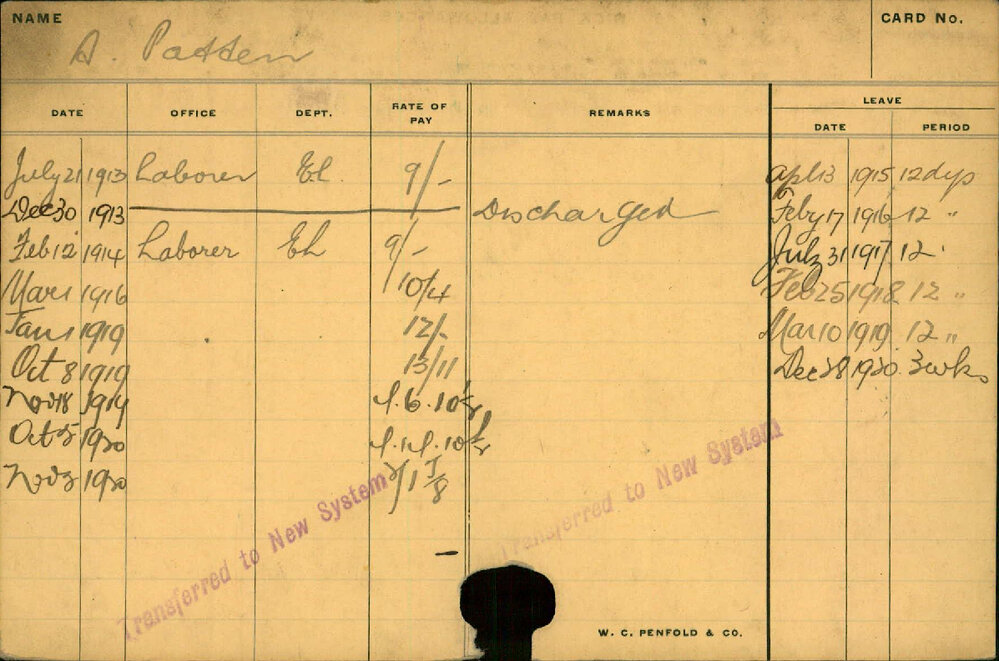 NAME
CARD No.
A. Patten
DATE OFFICE DEPT. RATE OF PAY REMARKS LEAVE
DATE PERIOD
July 21 1913 Laborer El. 9/- Apl 13 1915 12 dys
Dec 30 1913 Discharged Feby 17 1916 12 "
Feb 12 1914 Laborer El 9/- July 31 1917 12 "
Mar 1 1916 10/4 Feb 25 1918 12 "
Jan 1 1919 12/- Mar 10 1919 12 "
Oct 8 1919 13/11 Dec 28 1920 3 wks
Nov 18 1919
Oct 5 1920
Nov 3 1920
Transferred to New System
Transferred to New System
W. C. PENFOLD & CO.